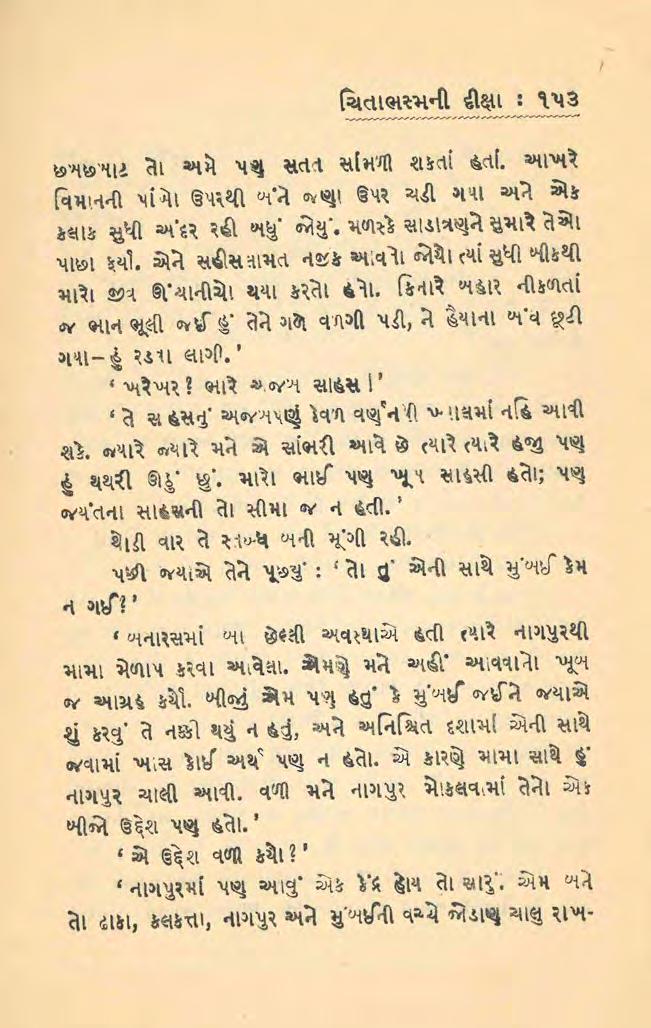 ચિતાભસ્મની દીક્ષા : ૧૫૩
છબછબાટ તો અમે પણ સતત સાંભળી શકતાં હતાં. આખરે
વિમાનની પાંખો ઉપરથી બંને જણા ઉપર ચડી ગયા અને એક
કલાક સુધી અંદર રહી બધું જોયું. મળસ્કે સાડાત્રણને સુમારે તેઓ
પાછા ફર્યા. એને સહીસલામત નજીક આવતો જોયો ત્યાં સુધી બીકથી
મારો જીવ ઊંચોનીચો થયા કરતો હતો. કિનારે બહાર નીકળતાં
જ ભાન ભૂલી જઈ હું તેને ગળે વળગી પડી, ને હૈયાના બંધ છૂટી
ગયા–હું રડવા લાગી.'
‘ ખરેખર? ભારે અજબ સાહસ!'
‘ તે સાહસનું અજબપણું કેવળ વર્ણનથી ખ્યાલમાં નહિ આવી
શકે. જ્યારે જ્યારે મને એ સાંભરી આવે છે ત્યારે ત્યારે હજુ પણ
હું થથરી ઊઠું છું. મારો ભાઈ પણ ખૂબ સાહસી હતો; પણ
જયંતના સાહસની તો સીમા જ ન હતી.'
થોડી વાર તે સ્તબ્ધ બની મૂંગી રહી.
પછી જયાએ તેને પૂછ્યું : ‘ તો તું એની સાથે મુંબઈ કેમ
ન ગઈ?'
‘ બનારસમાં બા છેલ્લી અવસ્થાએ હતી ત્યારે નાગપુરથી
મામા મેળાપ કરવા આવેલા. એમણે મને અહીં આવવાનો ખૂબ
જ આગ્રહ કર્યો. બીજું એમ પણ હતું કે મુંબઈ જઈને જયાએ
શું કરવું તે નક્કી થયું ન હતું, અને અનિશ્ચિત દશામાં એની સાથે
જવામાં ખાસ કોઈ અર્થ પણ ન હતો. એ કારણે મામા સાથે હું
નાગપુર ચાલી આવી. વળી મને નાગપુર મોકલવામાં તેનો એક
બીજો ઉદ્દેશ પણ હતો.'
‘ એ ઉદ્દેશ વળી કયો?'
‘ નાગપુરમાં પણ આવું એક કેંદ્ર હોય તો સારું. એમ બને
તો ઢાકા, કલકત્તા, નાગપુર અને મુંબઈની વચ્ચે જોડાણ ચાલુ રાખ-